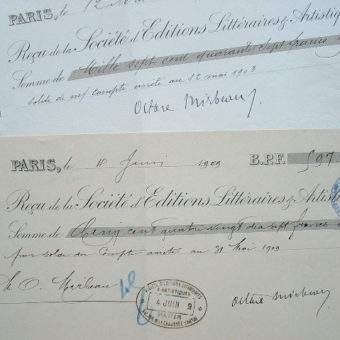 PARIS, le 12
Reçu de la Société d'Editions Littéraires & Artistiq
Somme de Mille sept cent quarante sept francs
solde de mon compte arrêté au 12 mai 1903
Octave Mirbeau
PARIS, le 4 Juin 1909 B.P.F. 597
Reçu de la Société d'Editions Littéraires & Artisti
Somme de Cinq cent quatre vingt dix sept francs
pour solde du compte arrêté au 31 Mai 1909
O. Mirbeau
4 JUIN 9
Octave Mirbeau